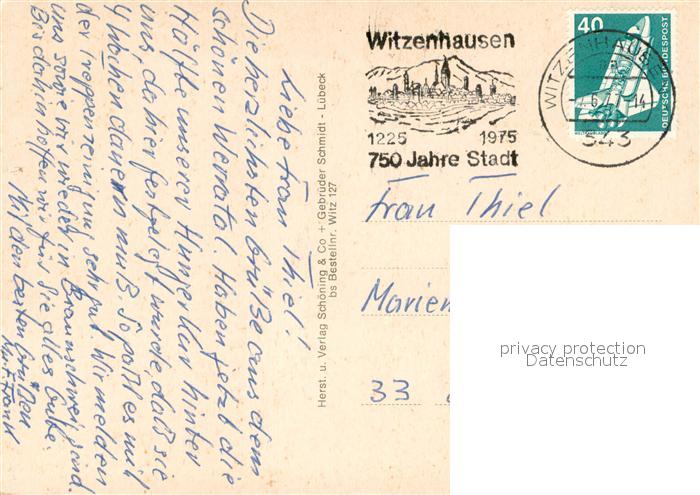 Liebe Frau Thiel!
Die herzlichsten Grüße aus dem
schönen Werratal. Haben jetzt die
Hälfte unserer Hungerkur hinter
uns, da hier festgelegt wurde, daß sie
4 Wochen dauern muß. So geht es mit
der Treppensteigung sehr gut. Wir melden
uns sowie wir wieder in Braunschweig sind.
Bis dahin hoffen wir für Sie alles Gute.
Mit den besten Grüßen
Herst. u. Verlag Schöning & Co + Gebrüder Schmidt - Lübeck
bs Bestellnr. Witz 127
Witzenhausen
1225 1975
750 Jahre Stadt
WITZENHAUSEN
6 14
343
40
DEUTSCHE BUNDESPOST
Frau Thiel
Marien
33
privacy protection
Datenschutz